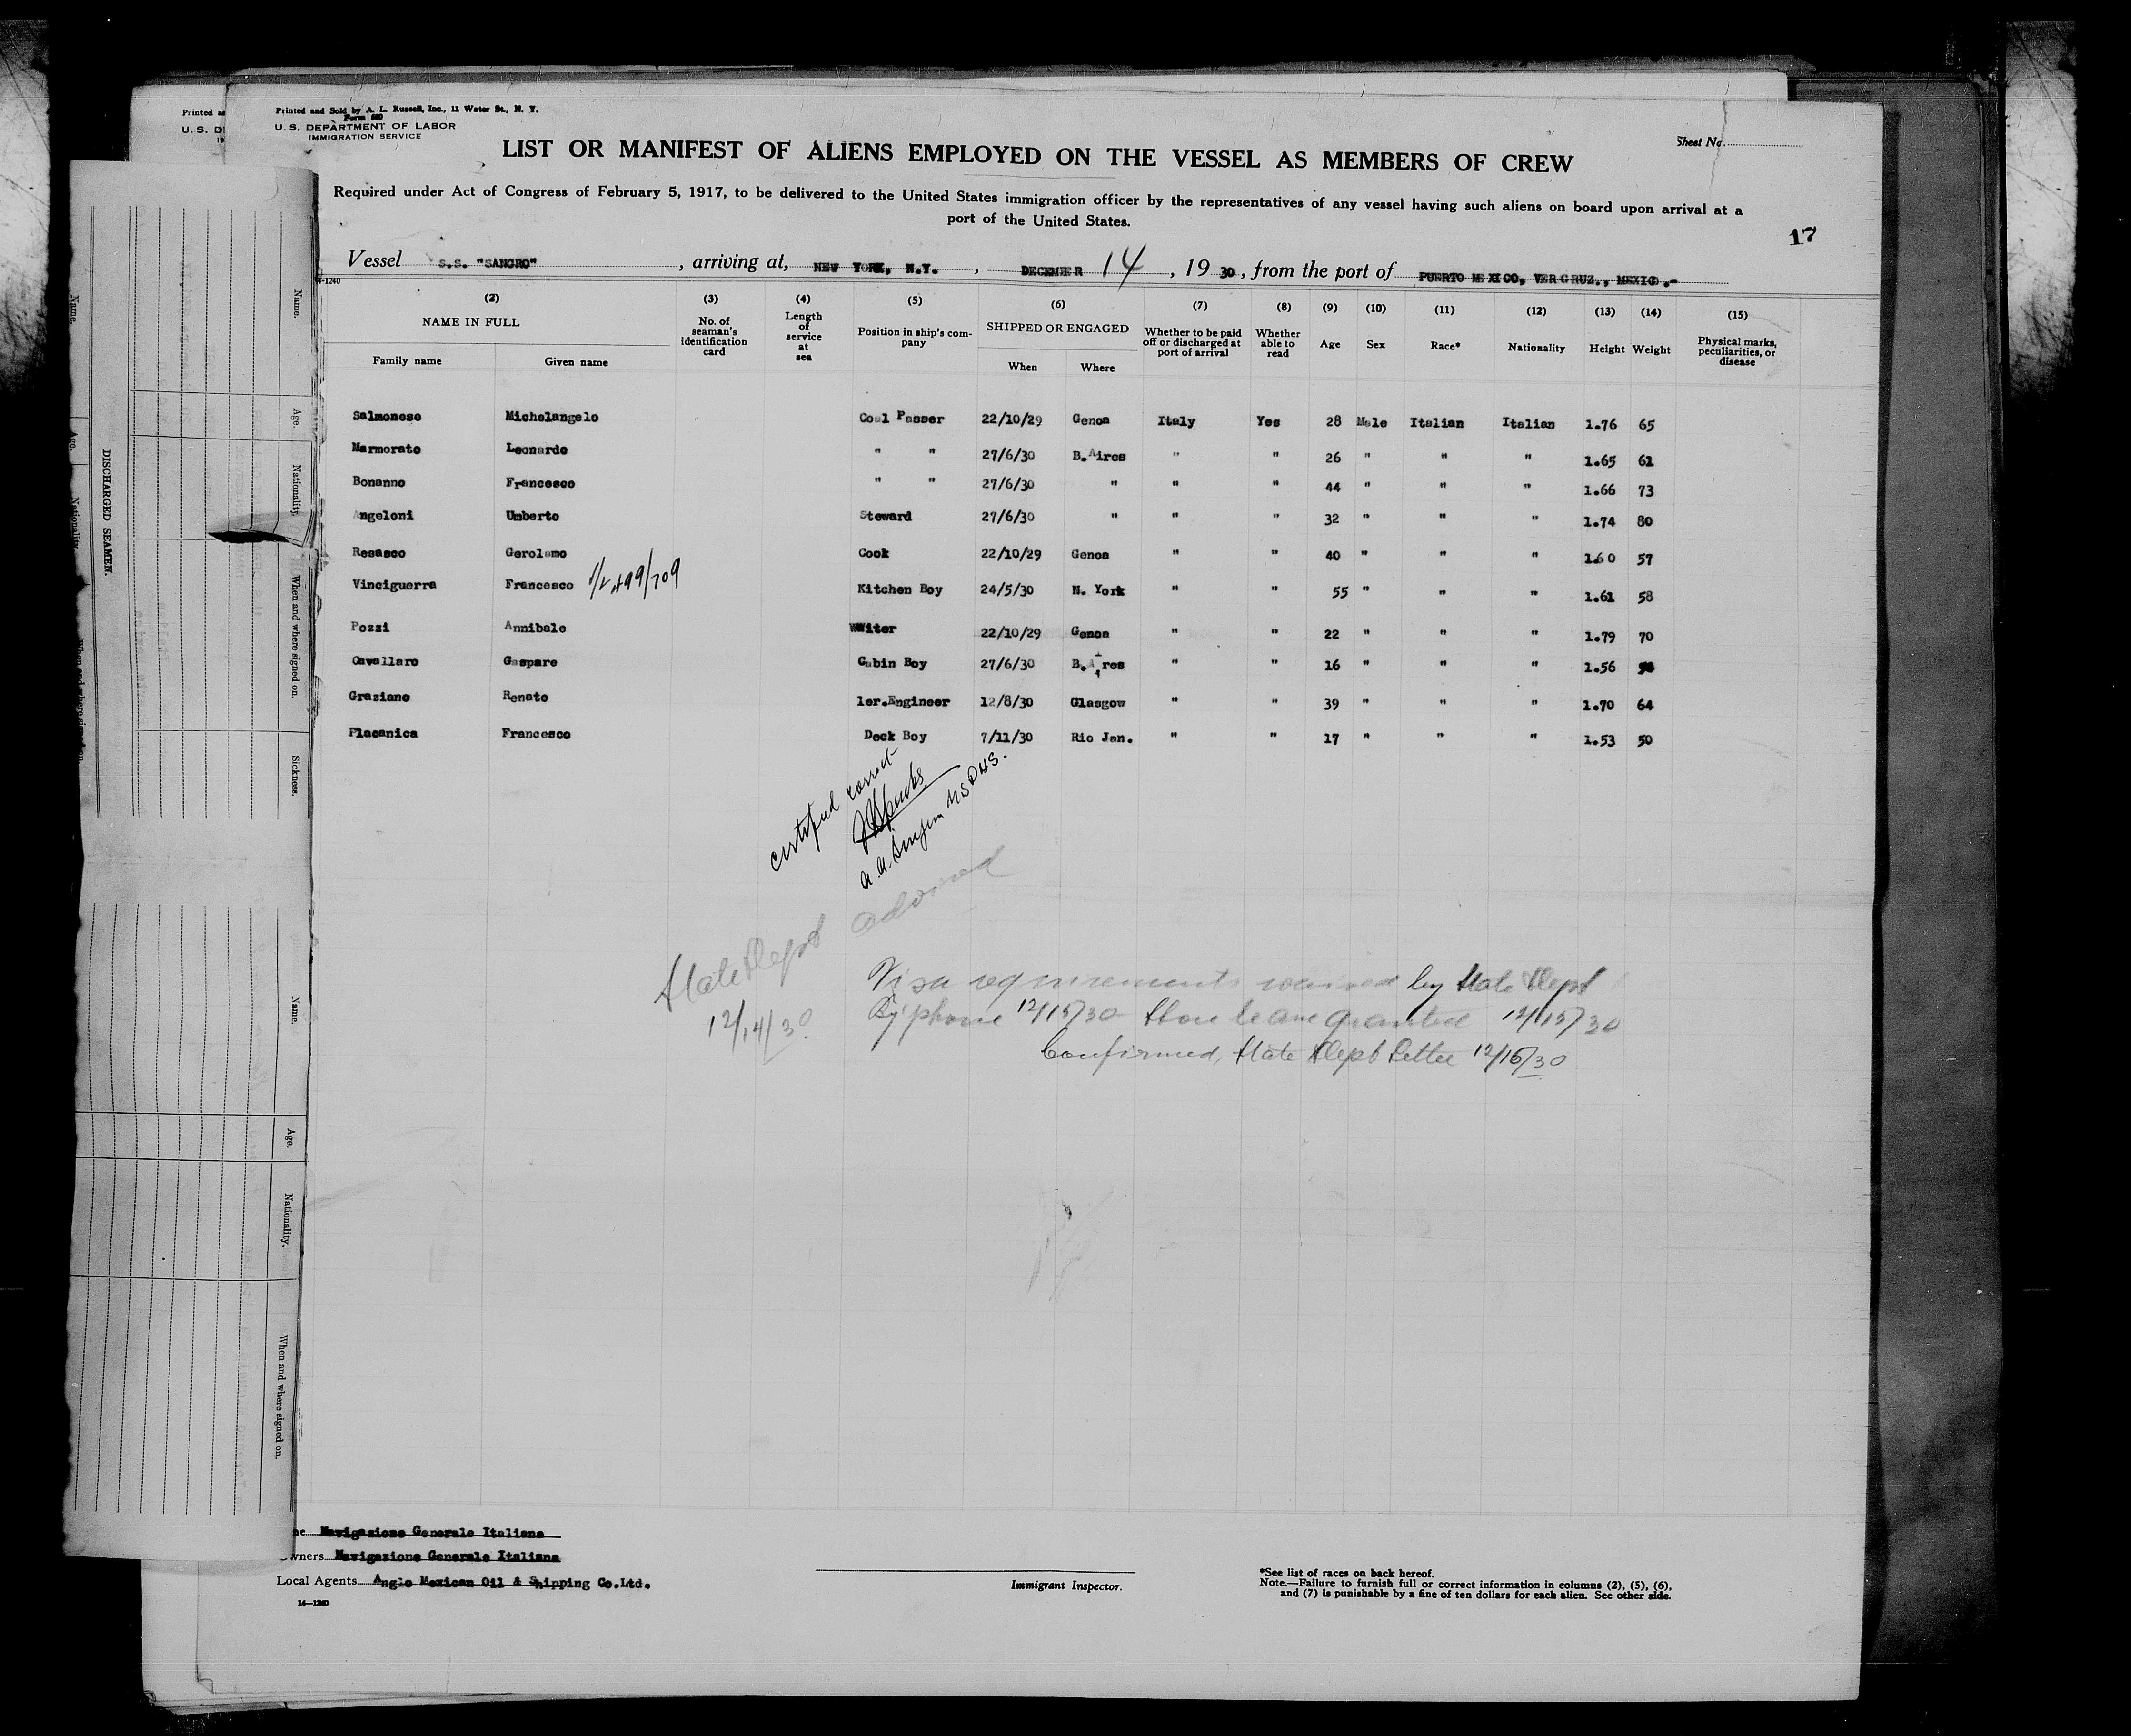 Printed and Sold by A. L. Russell, Inc., 11 Water St., N. Y.
Form 680
U. S. DEPARTMENT OF LABOR
IMMIGRATION SERVICE
Sheet No.
LIST OR MANIFEST OF ALIENS EMPLOYED ON THE VESSEL AS MEMBERS OF CREW
Required under Act of Congress of February 5, 1917, to be delivered to the United States immigration officer by the representatives of any vessel having such aliens on board upon arrival at a
port of the United States.
17
Vessel S.S. "SANGRO", arriving at, NEW YORK, N.Y., DECEMBER 14, 1930, from the port of PUERTO MEXICO, VERCRUZ., MEXICO.-
(2) NAME IN FULL Family name Given name
(3) No. of seaman's identification card
(4) Length of service at sea
(5) Position in ship's company
(6) SHIPPED OR ENGAGED When Where
(7) Whether to be paid off or discharged at port of arrival
(8) Whether able to read
(9) Age
(10) Sex
(11) Race*
(12) Nationality
(13) Height
(14) Weight
(15) Physical marks, peculiarities, or disease
Salmonese Michelangelo Coal Passer 22/10/29 Genoa Italy Yes 28 Male Italian Italian 1.76 65
Marmorato Leonardo " " 27/6/30 B.Aires " " 26 " " " 1.65 61
Bonanno Francesco " " 27/6/30 " " " 44 " " " 1.66 73
Angeloni Umberto Steward 27/6/30 " " " 32 " " " 1.74 80
Resasco Gerolamo Cook 22/10/29 Genoa " " 40 " " " 1.60 57
Vinciguerra Francesco 499/709 Kitchen Boy 24/5/30 N. York " " 55 " " " 1.61 58
Pozzi Annibale Witer 22/10/29 Genoa " " 22 " " " 1.79 70
Cavallaro Gaspare Cabin Boy 27/6/30 B.Aires " " 16 " " " 1.56
Graziano Renato 1er.Engineer 12/8/30 Glasgow " " 39 " " " 1.70 64
Placanica Francesco Deck Boy 7/11/30 Rio Jan. " " 17 " " " 1.53 50
certified correct
State Dept advised
12/14/30
Visa requirements waived by State Dept
By phone 12/15/30 Shore leave granted 12/15/30
Confirmed, State Dept Letter 12/16/30
Navigazione Generale Italiana
Owners Navigazione Generale Italiana
Local Agents Anglo Mexican Oil & Shipping Co.Ltd.
14—1240
Immigrant Inspector.
*See list of races on back hereof.
Note.—Failure to furnish full or correct information in columns (2), (5), (6),
and (7) is punishable by a fine of ten dollars for each alien. See other side.
DISCHARGED SEAMEN.
Name.
Age.
Nationality.
When and where signed on.
Sickness.
Name.
Age.
Nationality.
When and where signed on.